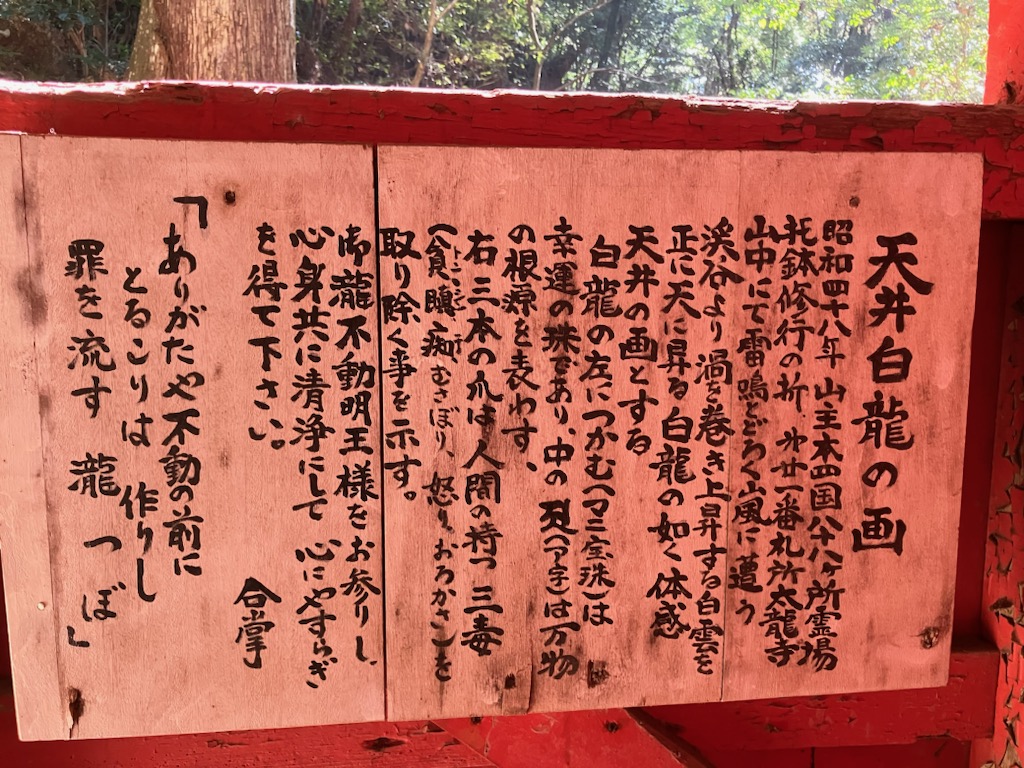 天井白龍の画
昭和四十八年 山主本四国八十八ヶ所霊場
托鉢修行の折、廿一番札所太龍寺
山中にて雷鳴とどろく山風に遭う
渓谷より渦を巻き上昇する白雲を
正に天に昇る白龍の如く体感
天井の画とする
白龍の左につかむ(マニ宝珠)は
幸運の珠であり、中の(ア字)は万物
の根源を表わす、
右三本の爪は人間の持つ三毒
(貪瞋痴むさぼり、怒り、おろかさ)を
トンジンチ
取り除く事を示す。
御瀧不動明王様をお参りし、
心身共に清浄にして 心にやすらぎ
を得て下さい。
合掌
「ありがたや不動の前に
とるこりは 作りし
罪を流す 瀧つぼ」